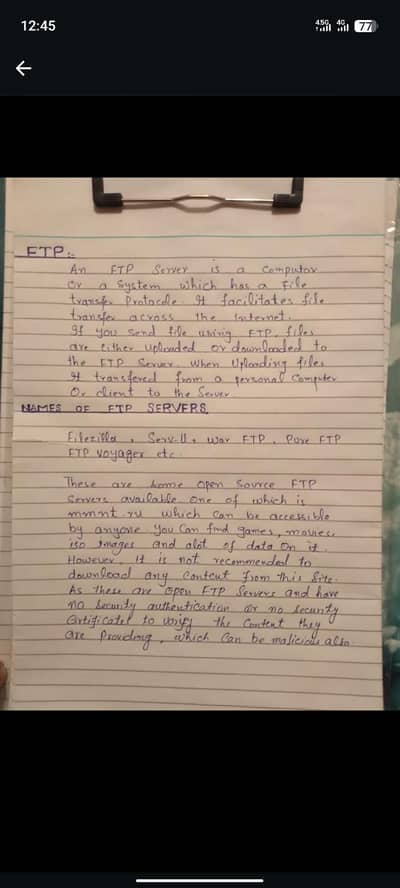 12:45
4.5G 4G 77
FTP:-
An FTP Server is a Computer
Or a System which has a File
transfer Protocole. It facilitates file
transfer across the Internet.
If you send file using FTP, files
are either uploaded or downloaded to
the FTP Server. When Uploading files
It transfered from a personal Computer
Or client to the Server.
NAMES OF FTP SERVERS.
Filezilla, Serv-U, war FTP, Pure FTP
FTP Voyager etc.
These are home Open Source FTP
Servers available one of which is
mmnt.ru which Can be accessible
by anyone. You Can find games, movies,
iso Images and alot of data On it.
However, It is not recommended to
download any Contcut from this Site.
As these are open FTP Servers and have
no Security authentication or no security
Certificatet to varify the Content they
are Providing, which Can be malicious also.